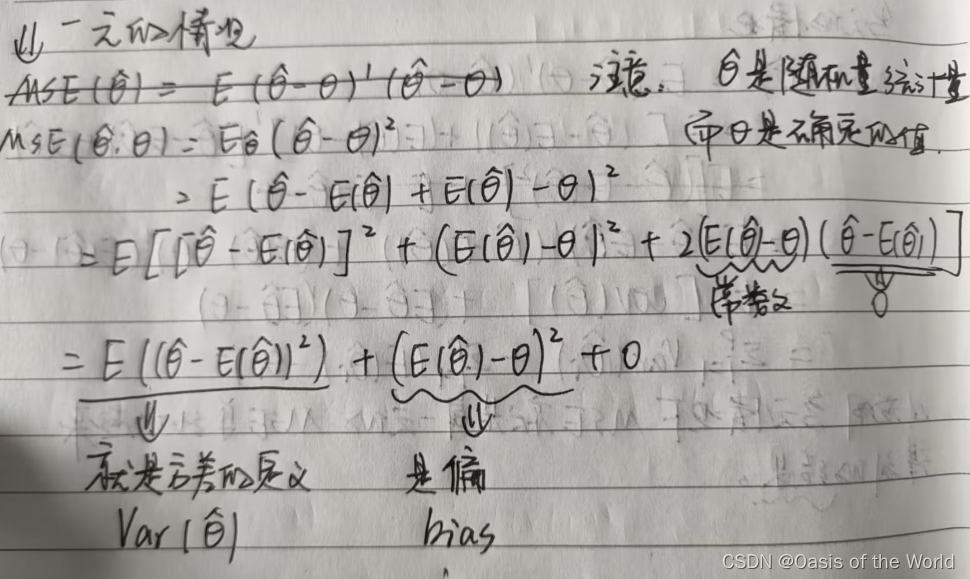 ⇓ 一元的情况
MSE(θ̂) = E(θ̂-θ)'(θ̂-θ) 注意, θ̂是随机量统计量
MSE(θ̂, θ) = E_θ̂(θ̂-θ)² 而θ是确定的值.
= E(θ̂-E(θ̂)+E(θ̂)-θ)²
= E[[θ̂-E(θ̂)]²+(E(θ̂)-θ)²+2(E(θ̂)-θ)(θ̂-E(θ̂))]
常数 ⇓
0
= E((θ̂-E(θ̂))²) + (E(θ̂)-θ)² + 0
⇓ ⇓
就是方差的定义 是偏
Var(θ̂) bias
CSDN @Oasis of the World